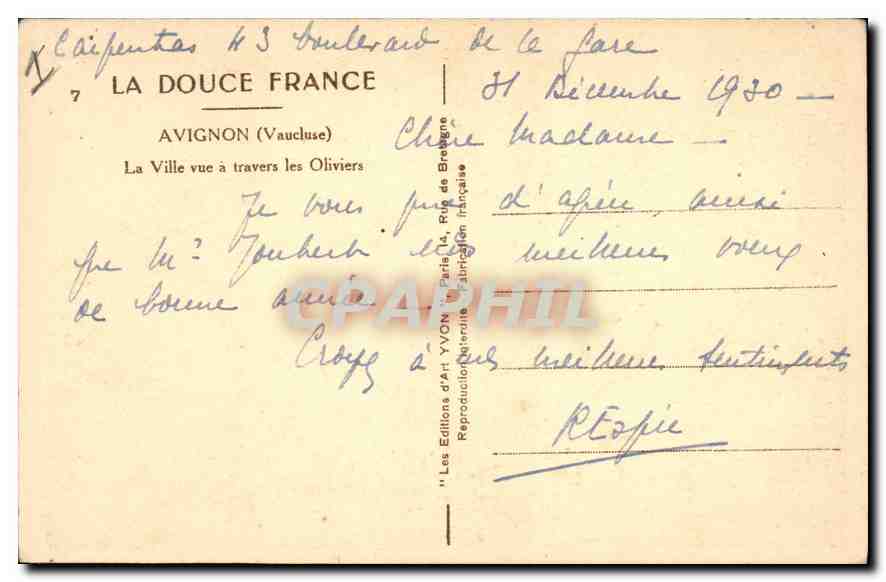 Carpentras 43 boulevard de la gare
31 Décembre 1930 —
7 LA DOUCE FRANCE
AVIGNON (Vaucluse)
La Ville vue à travers les Oliviers
Chère Madame —
Je vous prie d'agréer, ainsi
que Mr Joubert mes meilleurs voeux
de bonne année
Croyez à mes meilleurs sentiments
REspie
"Les Editions d'Art YVON" Paris, 14, Rue de Bretagne
Reproduction interdite Fabrication française
CPAPHIL